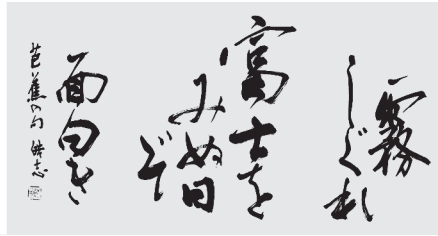 霧
しぐれ
富士を
みぬ日
ぞ
面白き
芭蕉の句 皓志